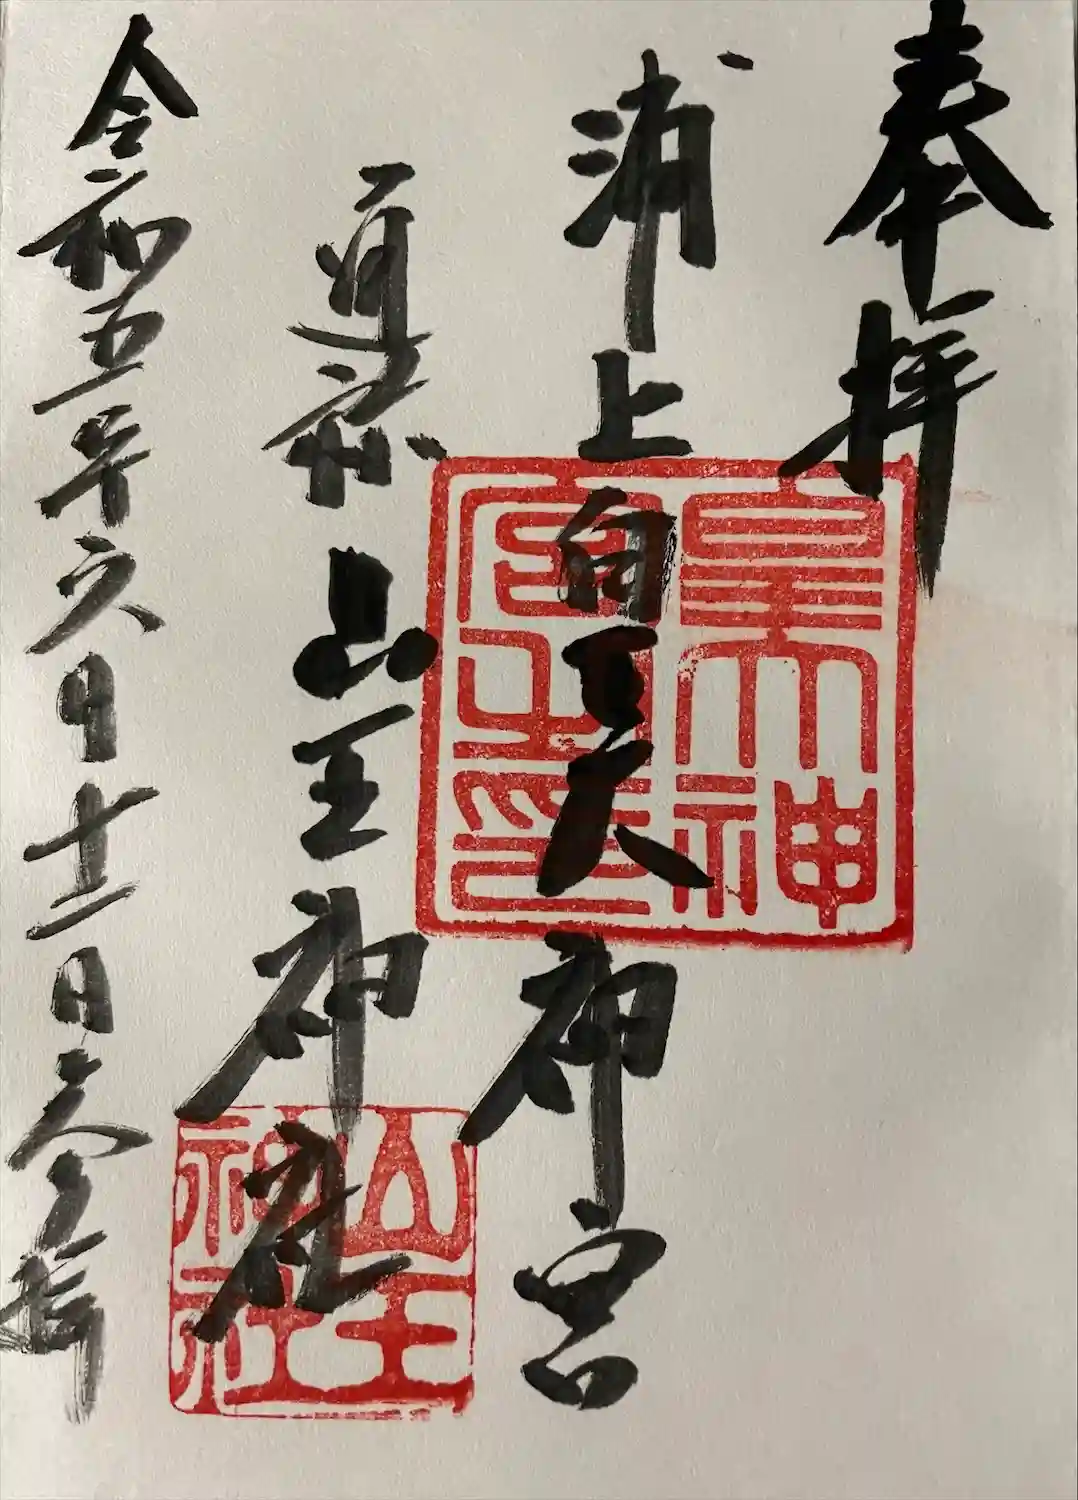 奉拝
浦上皇大神宮
通称 山王神社
令和五年六月十二日参拝
皇大神
宮之印
山王
神社